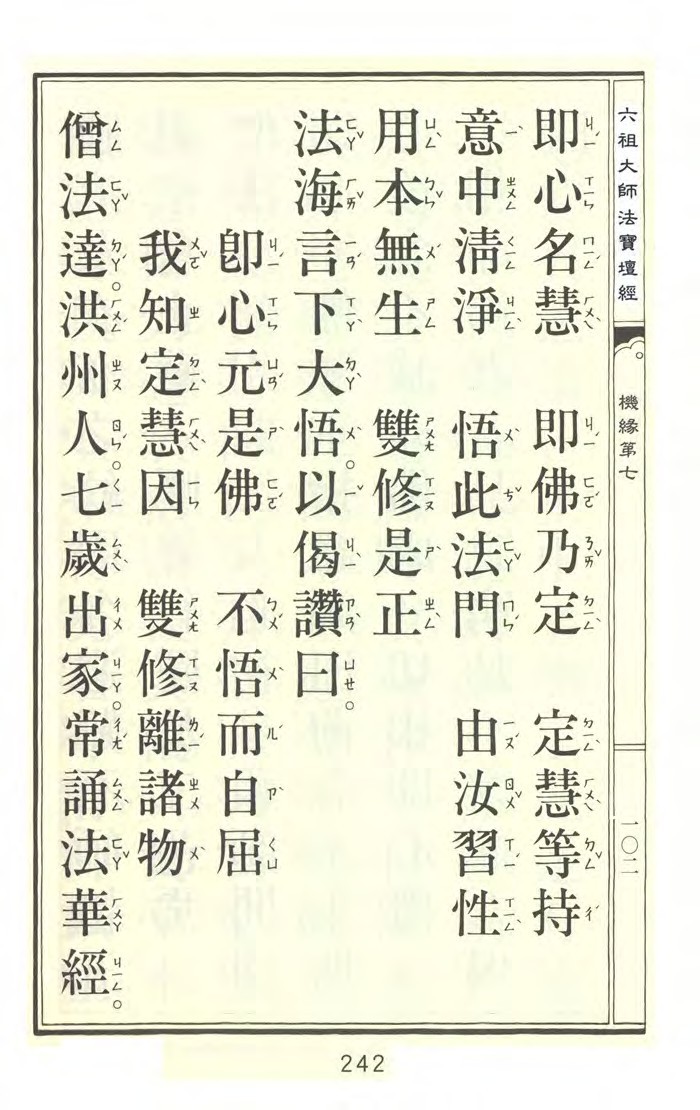 六祖大師法寶壇經
機緣第七
一〇二
即心名慧 即佛乃定 定慧等持
意中淸淨 悟此法門 由汝習性
用本無生 雙修是正
法海言下大悟。以偈讚曰。
卽心元是佛 不悟而自屈
我知定慧因 雙修離諸物
僧法達。洪州人。七歲出家。常誦法華經。
242